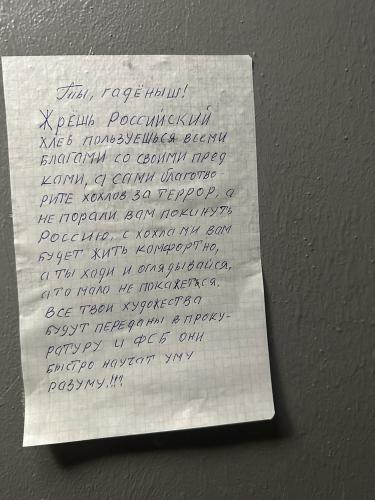 Ты, гадёныш!
Жрёшь Российский
хлеб пользуешься всеми
благами со своими пред
ками, а сами благотво
рите хохлов за террор, а
не порали вам покинуть
Россию, с хохлами вам
будет жить комфортно,
а ты ходи и оглядывайся,
а то мало не покажеться.
Все твои художества
будут переданы в проку-
ратуру и ФСБ они
быстро научат уму
разуму!!!